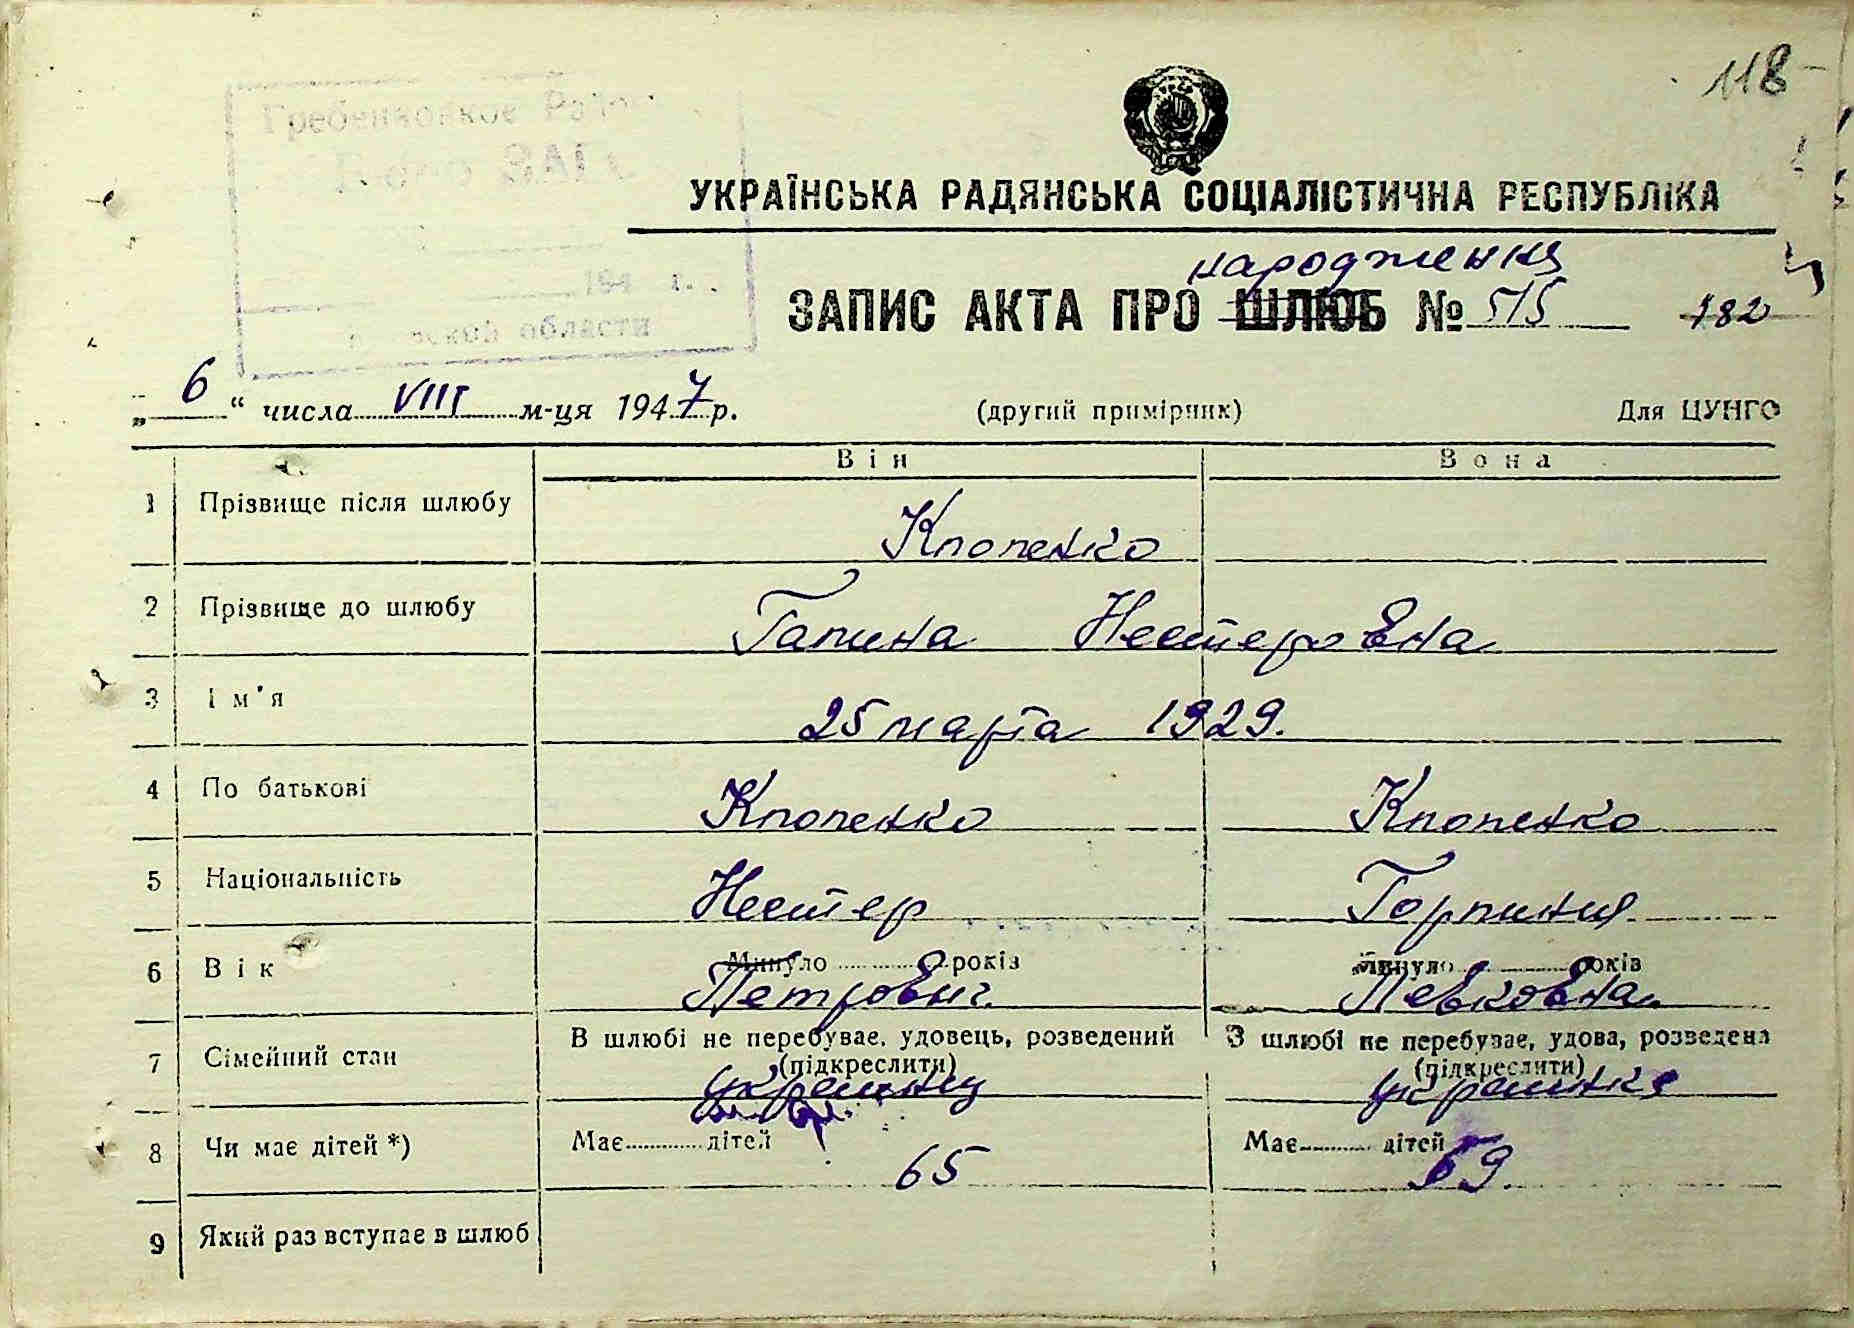 118
Гребенковское Райо
Бюро ЗАГС
194 г.
ской области
УКРАЇНСЬКА РАДЯНСЬКА СОЦІАЛІСТИЧНА РЕСПУБЛІКА
народження
ЗАПИС АКТА ПРО ШЛЮБ № 515 182
„ 6 “ числа VIII м-ця 1947 р. (другий примірник) Для ЦУНГО
Він Вона
1 Прізвище після шлюбу Клопенко
2 Прізвище до шлюбу Галина Нестеровна
3 Ім'я 25 марта 1929.
4 По батькові Клопенко Клопенко
5 Національність Нестер Горпина
6 Вік Минуло ........ років Минуло ........ років
Петрович. Левковна.
7 Сімейний стан В шлюбі не перебуває, удовець, розведений З шлюбі не перебуває, удова, розведена
(підкреслити) (підкреслити)
украинец украинка
8 Чи має дітей *) Має ........ дітей Має ........ дітей
65 59.
9 Який раз вступає в шлюб